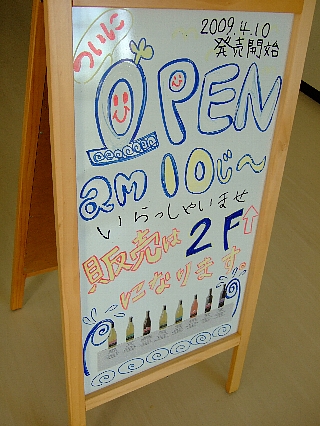 ついに
2009.4.10
発売開始
OPEN
am 10じ〜
いらっしゃいませ
販売は 2F↑
になります。